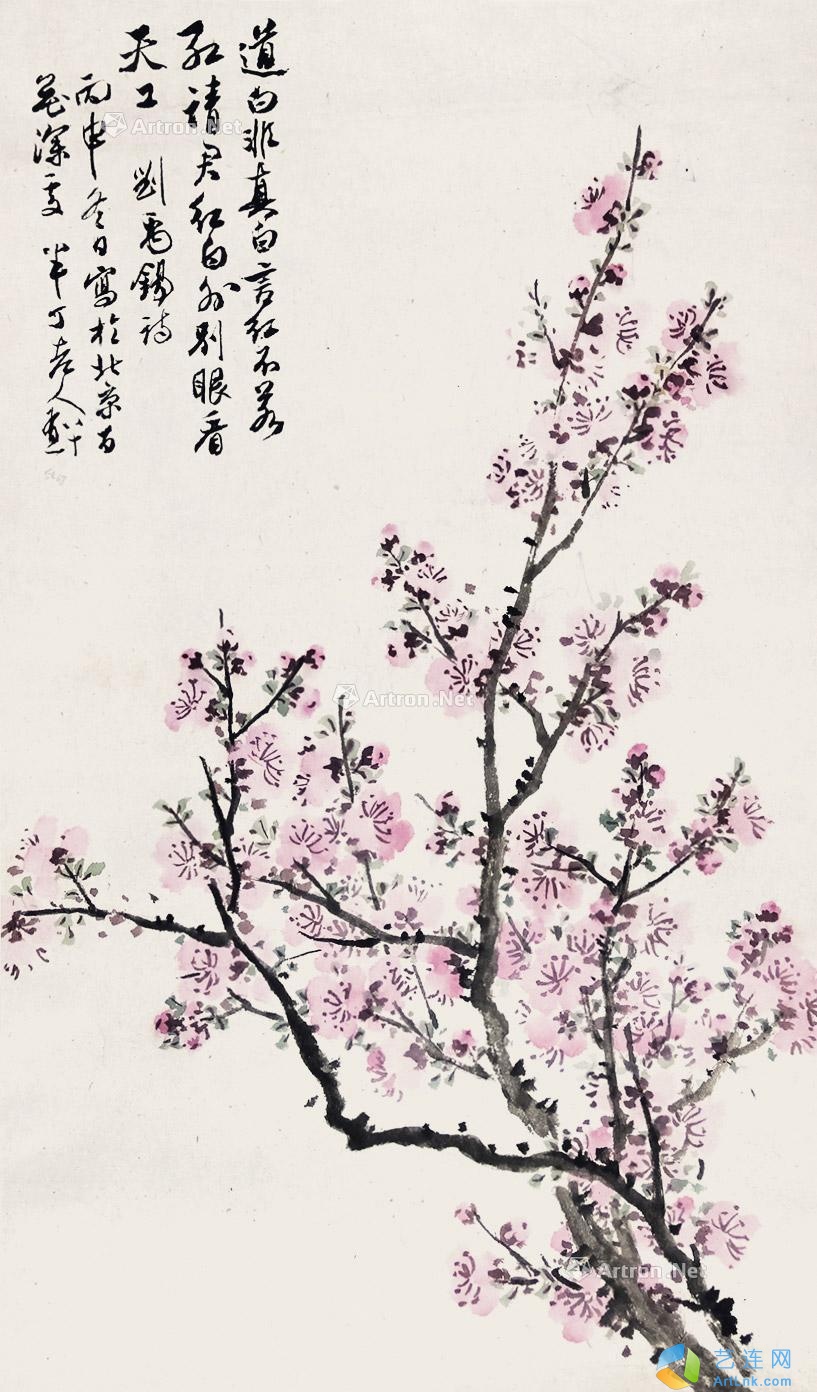 道白非真白言红不若
红請君红白外别眼看
天工 劉禹錫詩
丙申冬日寫於北京百
花深处 半丁老人 八十
Artron.Net
Artron.Net
Artron.Net
艺连网
Artlnk.com